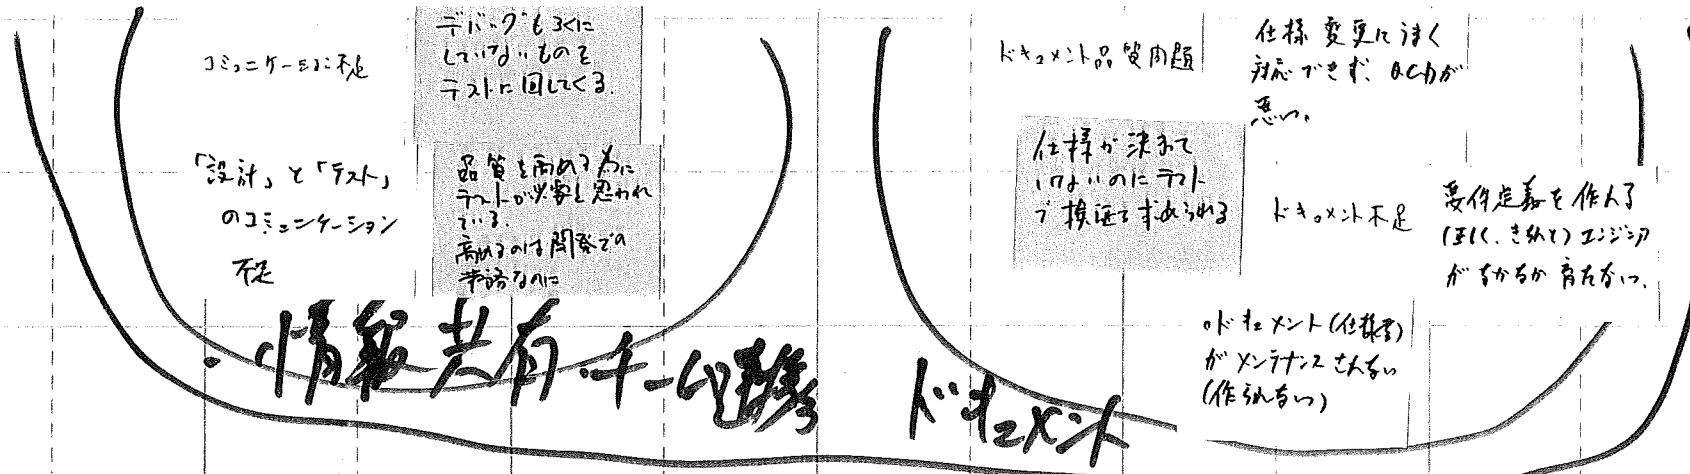 コミュニケーション不足
デバッグもろくに
していないものを
テストに回してくる。
「設計」と「テスト」
のコミュニケーション
不足
品質を高める為に
テストが必要と思われ
ている。
高めるのは開発での
なのに
・情報共有・チーム連携
ドキュメント品質問題
仕様変更にうまく
対応できず、QCDが
悪い。
仕様が決まって
いないのにテスト
で検証を求められる
ドキュメント不足
要件定義を作れる
(正しく、きちんと)エンジニア
がなかなか育たない。
・ドキュメント(仕様書)
がメンテナンスされない
(作られない)
ドキュメント